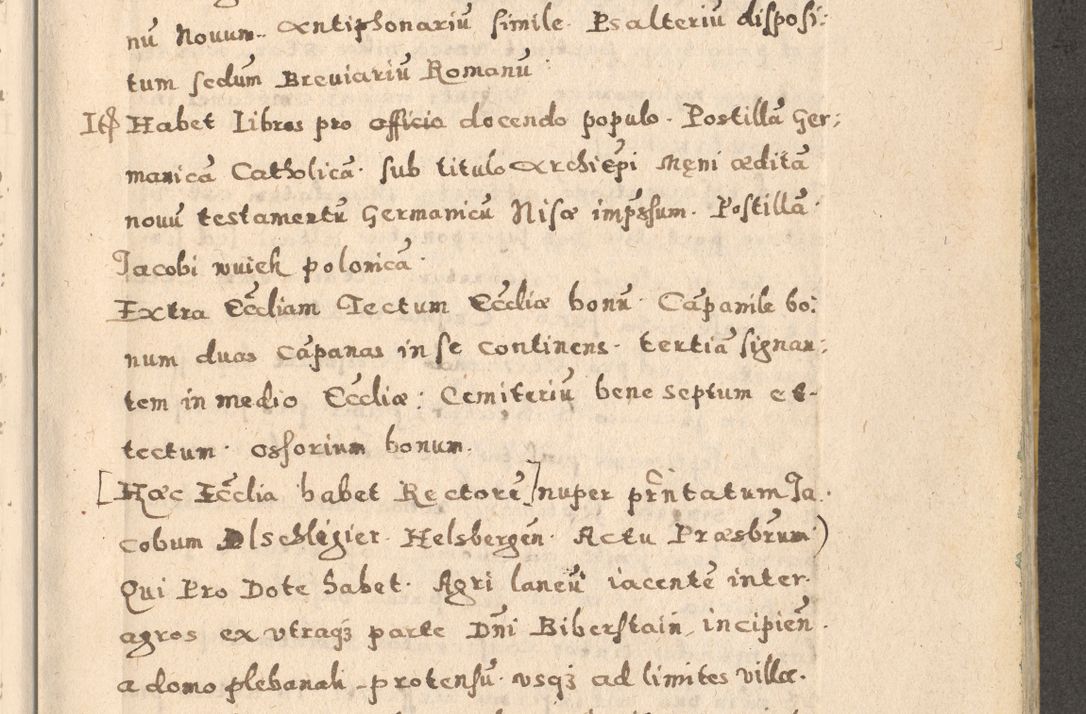 nū Novum. Antiphonariū simile. Psalteriū disposi:
tum secdum Breviariū Romanū.
Itē Habet Libros pro officio docendo populo. Postillā Ger:
manicā Catholicā. sub titulo Archiepi Męni æditā
novū testamentū Germanicū Nisæ impssum. Postillā.
Jacobi wuiek polonicā.
Extra Eccliam Tectum Eccliæ bonū. Cāpanile bo:
num duas cāpanas in se continens. tertiā signan:
tem in medio Eccliæ: Cemiteriū bene septum et
tectum. ossorium bonum.
[Hæc Ecclia habet Rectorē] nuper prñtatum Ja.
cobum Olschlegier. Helsbergeñ. Actu Præsbrum.)
Qui Pro Dote habet. Agri laneū iacentē inter.
agros ex vtraqз parte Dñi Biberstain, incipieñ.
a domo plebanali protensū. vsqз ad limites villæ.